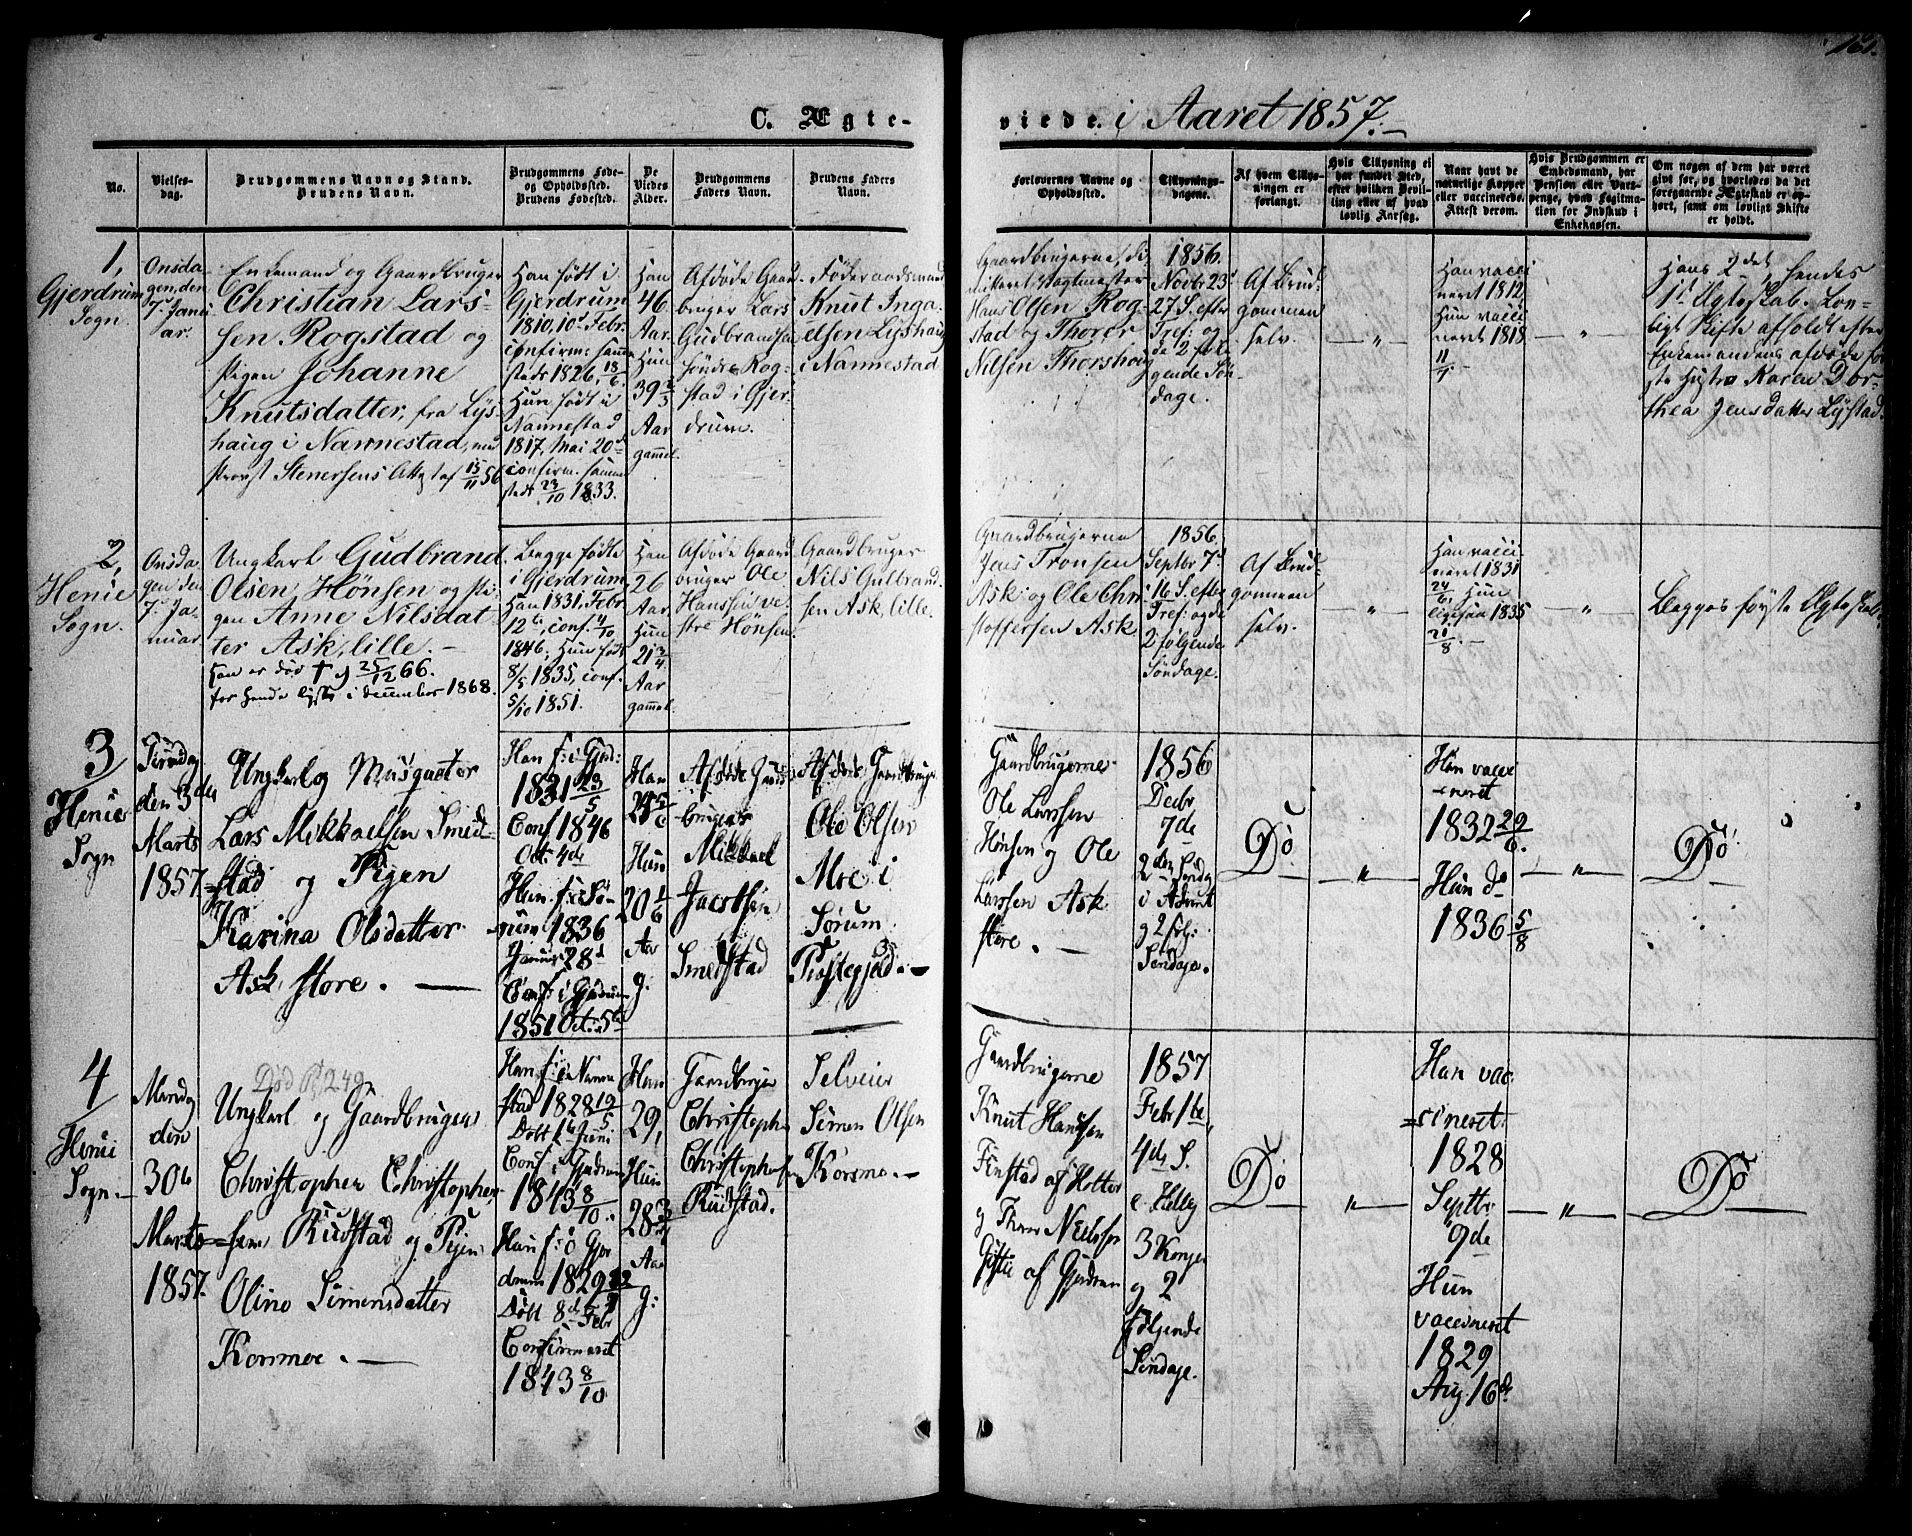 161.
C. Ægte-
viede i Aaret 1857.
No.
Vielses-
dag.
Brudgommens Navn og Stand.
Brudens Navn.
Brudgommens Føde-
og Opholdssted.
Brudens Fødested.
De
Viedes
Alder.
Brudgommens
Faders Navn.
Brudens Faders
Navn.
Forlovernes Navne og
Opholdssted.
Tillysnings-
dagene.
Af hvem Tillys-
ningen er
forlangt.
Hvis Tillysning ei
har fundet Sted,
efter hvilken Bevil-
ling eller af hvad
lovlig Aarsag.
Naar havt de
naturlige Kopper
eller vaccinerede.
Attest derom.
Hvis Brudgommen er
Embedsmand, har
Pension eller Vart-
penge, hvad Legitima-
tion for Indskud i
Enkekassen.
Om nogen af dem har været
givt før, og hvorledes da det
foregaaende Ægteskab er op-
hørt, samt om lovligt Skifte
er holdt.
1,
Gjerdrum
Sogn.
Onsda-
gen, den
7. Janu
ar.
Enkemand og Gaardbruger
Christian Lars-
sen Rogstad og
Pigen Johanne
Knutsdatter, fra Lys-
haug i Nannestad, med
Provst Stenersens Attest af 15/11 56
Han født i
Gjerdrum
1810, 10d Febr.
confirm: samme
steds 1826, 18/6.
Hun født i
Nannestad
1817, Mai 20d
confirm. samme
steds 23/10 1833.
Han
46
Aar.
Hun
39 2/3
Aar
gammel.
Afdøde Gaard
bruger Lars
Gudbrandsen
søndre Rog-
stad i Gjer-
drum.
Føderaadsmand
Knut Inga
elsen Lyshaug
i Nannestad
Gaardbrugerne, Di-
mitteret Vagtmester
Hans Olsen Rog-
stad og Thorer
Nilsen Thorshaug
1856.
Novbr 23d
27 S. efter
Tref: og
de 2 føl-
gende Søn-
dage.
Af Brud-
gommen
selv.
"
Han vacci
neret 1812.
Hun vacci
neret 1818
11/7
"
Hans 2det, hendes
1st Ægteskab. Lov-
ligt Skifte afholdt efter
Enkemandens afdøde før-
ste Hustro Karen Dor-
thea Jensdatter Lystad.
2,
Henie
Sogn.
Onsda-
gen den
7. Ja-
nuar
Ungkarl Gudbrand
Olsen Hönsen og Pi-
gen Anne Nilsdat-
ter Ask, lille. -
Han er død † 25/12 66.
for Hende lyste i December 1868.
Begge fødte
i Gjerdrum.
Han 1831, Febr.
12te, conf. 4/10
1846. Hun født
8/5 1835, conf.
5/10 1851.
Han
26
Aar
Hun
21 3/4
Aar
gammel.
Afdøde Gaard
bruger Ole
Hanssen ve-
stre Hønsen.
Gaardbruger
Nils Gulbrand-
sen Ask, lille.
Gaardbrugerne
Jens Tronsen
Ask og Ole Chri-
stoffersen Ask
1856.
Septbr 7d
16 S. efter
Tref: og de
2 følgende
Søndage.
Af Brud-
gommen
selv.
"
Han vacci-
neret 1831
24/6, Hun
ligesaa 1835
20/8.
"
Begges første Ægteskab.
3
Henie
Sogn
Tirsdag
den 3die
Marts
1857
Ungkarl og Musqueter
Lars Mikkaelsen Smed-
stad og Pigen
Karina Olsdatter
Ask, store. -
Han f: i Gjed:
1831 23/5
Conf 1846
Oct. 4de
Hun f: i Sø-
rum 1836
Januar 28d
Conf: i Gjedrum
1851 Oct: 5te
Han
25 5/6
Hun
20 1/6
Aar
g.
Afdøde Gaard-
bruger
Mikkael
Jacobsen
Smedstad
Afdøde Gaardbruger
Ole Olsen
Moe i
Sørum
Præstegjeld. -
Gaardbrugerne
Ole Larssen
Hønsen og Ole
Larssen Ask
store. -
1856
Decbr
7de
2den Søndag
i Advent
og 2 følg:
Søndage.
Do
"
Han vacci
neret
1832 29/6.
Hun do
1836 5/8
"
Do
4
Henie
Sogn. -
Mandag
den
30te
Marts
1857.
Død P. 249
Ungkarl og Gaardbruger
Christopher Christopher-
sen Rudstad og Pigen
Oline Simensdatter
Korsmoe. -
Han f: i Nanne
stad 1828 19/5
Døbt 1ste Juni
Conf i Gjedrum
1843 8/10.
Hun f: i Gjer
drum 1829
Døbt 8de Febr
Confirmeret
1843 8/10
Han
29,
Hun
28 3/4
Aar
g:
Gaardbruger
Christopher
Christophersen
Rudstad.
Selveier
Simen Olsen
Korsmo. -
Gaardbrugerne
Knut Hanssen
Finstad af Holter
og Thor Neilssen
Gjstie af Gjedrum
1857
Febr 1te,
4de S.
e. Hellig
3 Konger
og 2
følgende
Søndage.
Do
"
Han vac-
cineret
1828
Septbr
9de
Hun
vaccineret
1829
Aug. 16de
"
Do